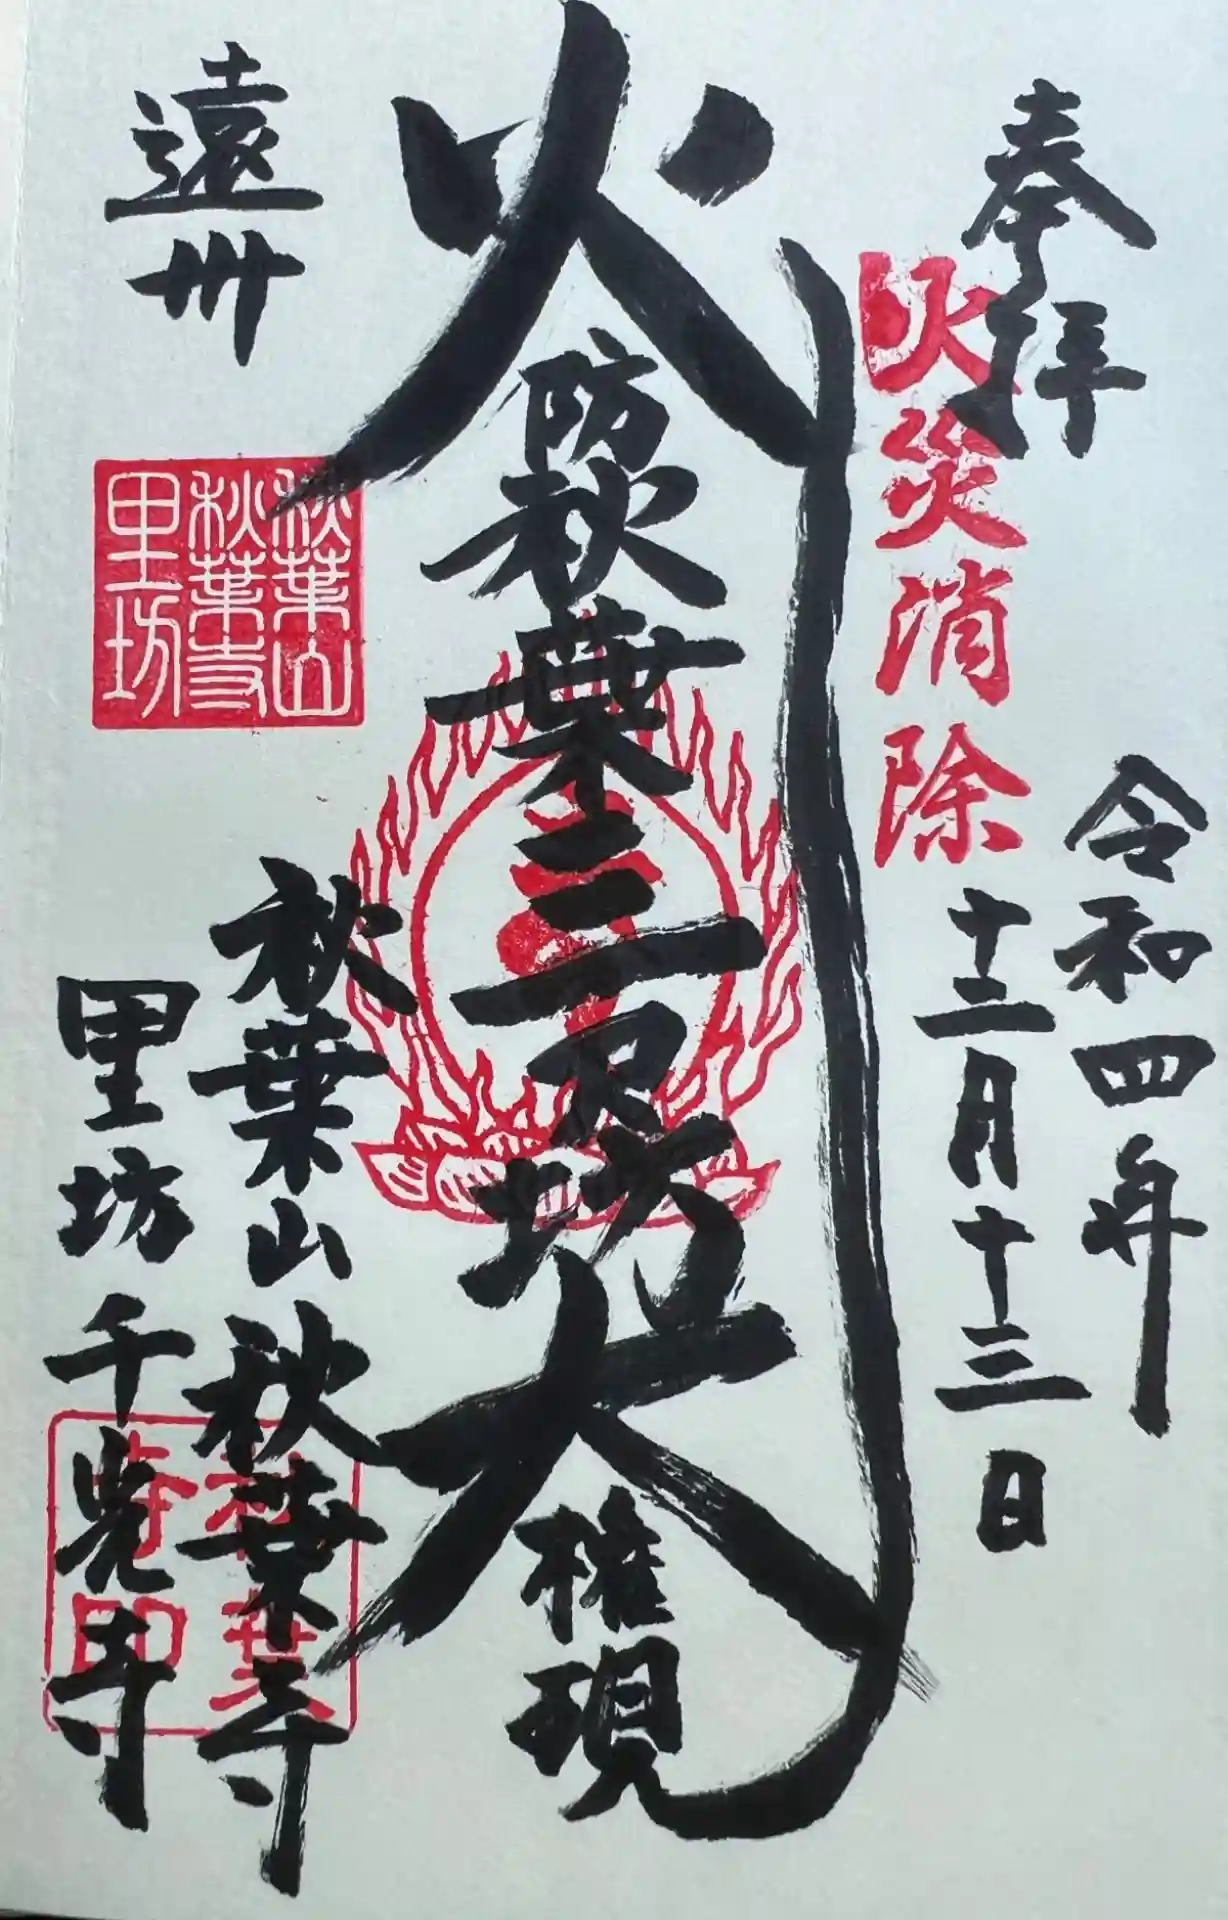 奉拝
火災消除
令和四年
十二月十三日
火
防秋葉三尺坊大
権現
遠州
秋葉山
秋葉寺
里坊
秋葉山秋葉寺
里坊千光寺
秋葉
寺印